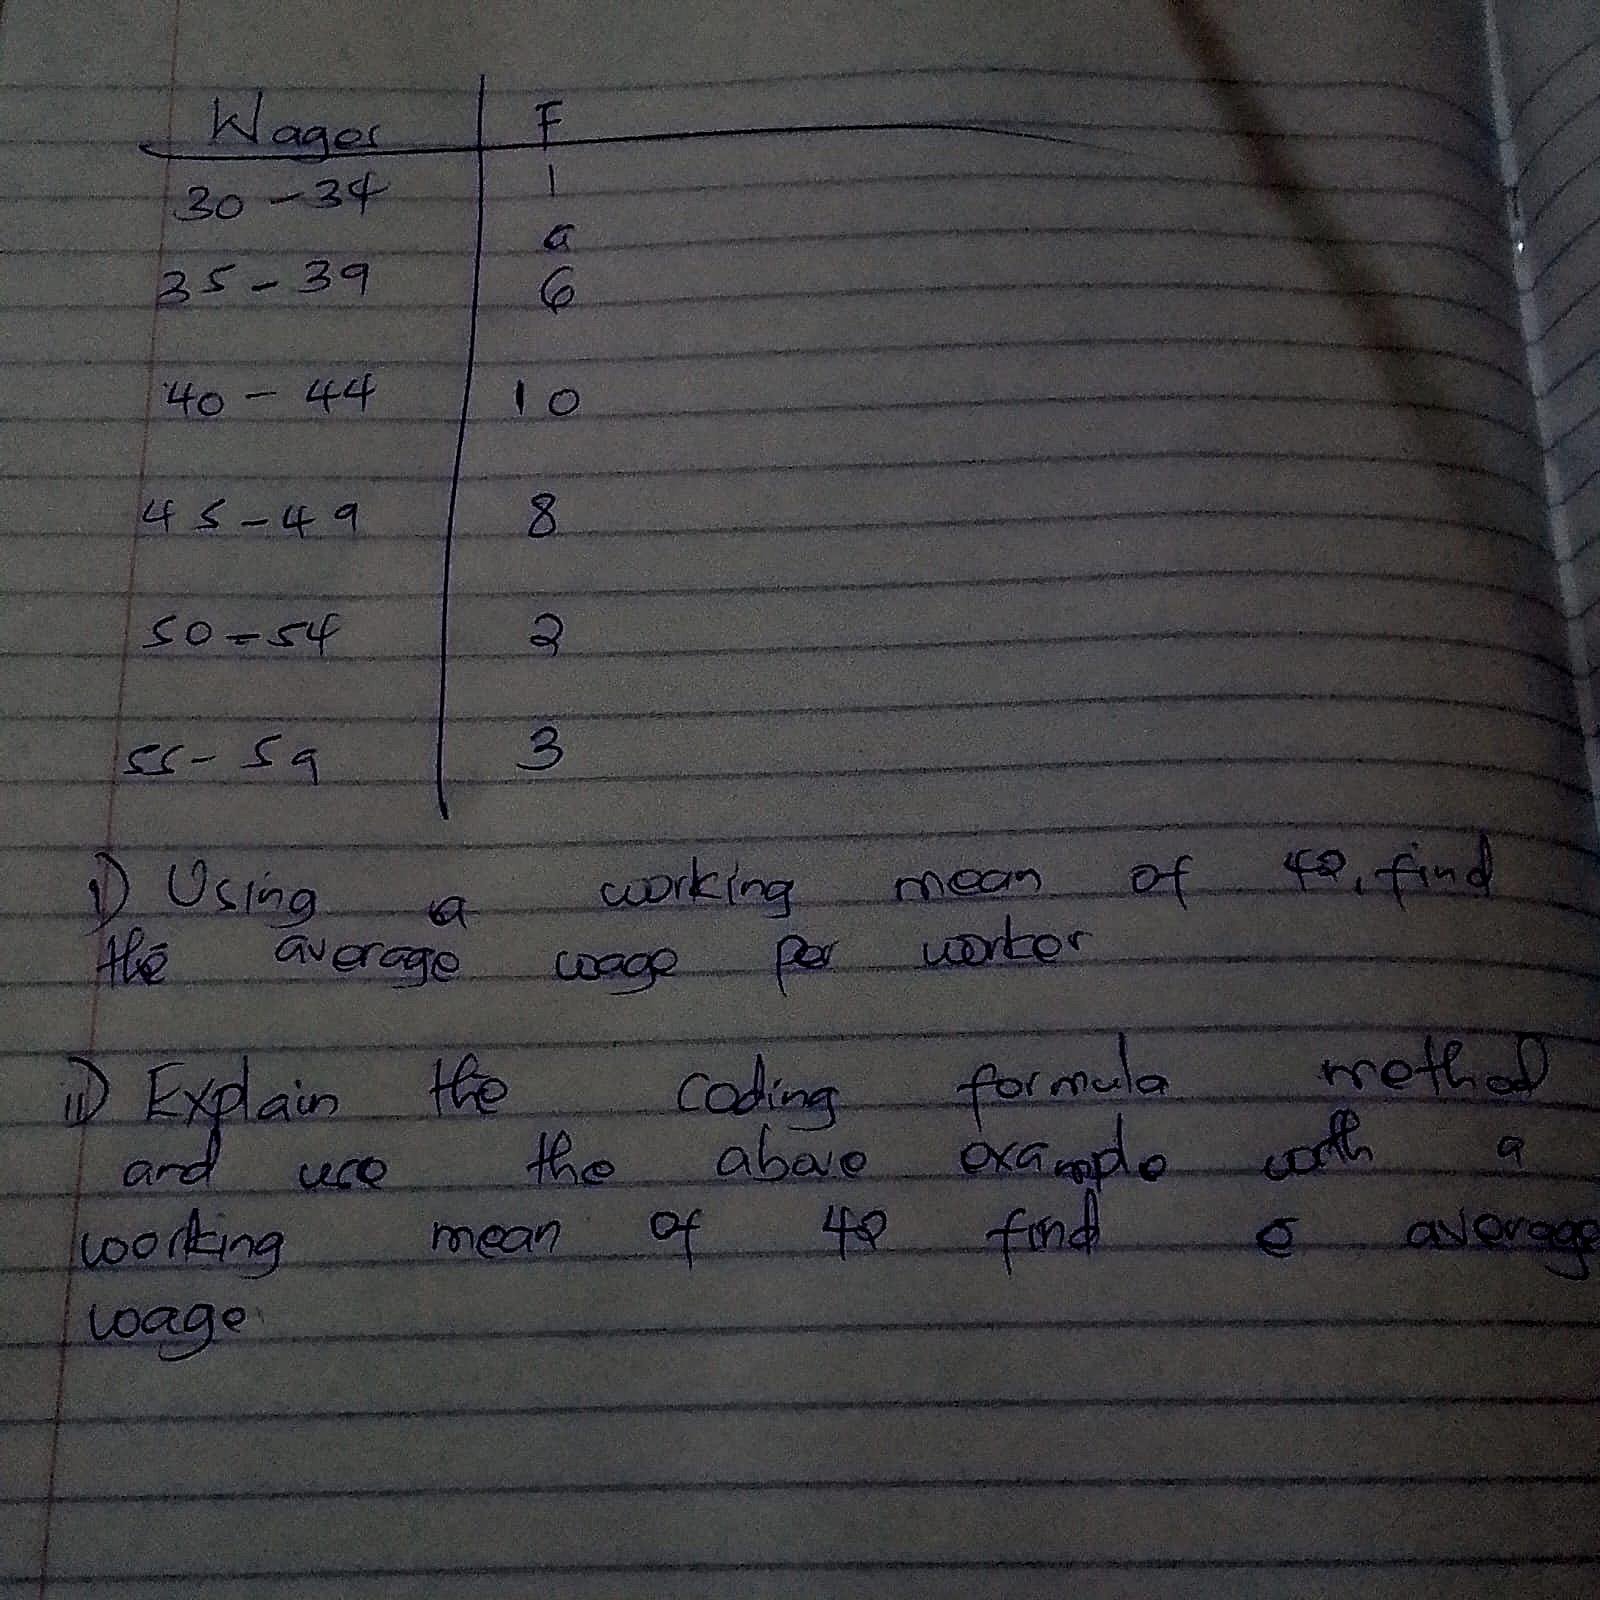 Wages F
30 - 34 1
a
35 - 39 6
40 - 44 10
45 - 49 8
50 - 54 2
55 - 59 3
i) Using a working mean of 42, find
the average wage per worker
ii) Explain the coding formula method
and use the above example with a
working mean of 42 find average
wage